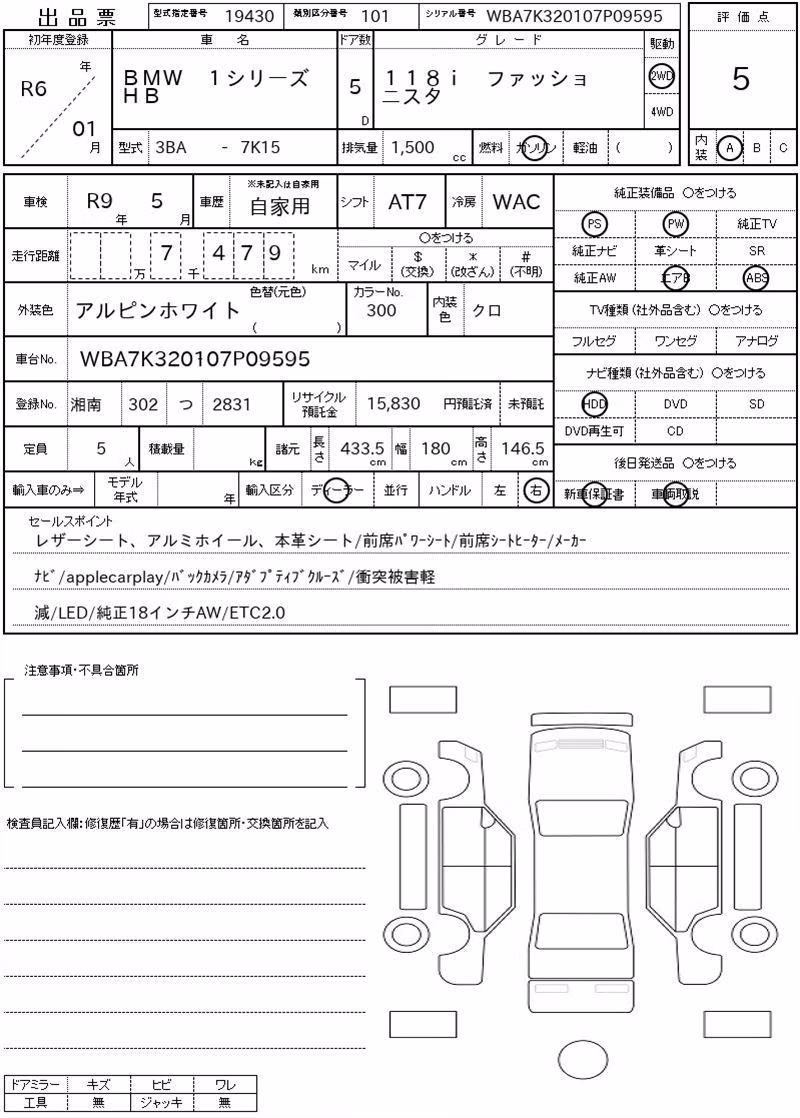 出 品 票 型式指定番号 19430 類別区分番号 101 シリアル番号 WBA7K320107P09595
初年度登録 車 名 ドア数 グレード 駆動 評 価 点
R6 年 01 月
BMW 1シリーズ
HB
5 D
118i ファッショ
ニスタ
2WD
4WD
5
型式 3BA - 7K15 排気量 1,500 cc 燃料 ガソリン 軽油 ( ) 内装 A B C
車検 R9 年 5 月 車歴 ※未記入は自家用 自家用 シフト AT7 冷房 WAC 純正装備品 ○をつける
PS PW 純正TV
走行距離 万 7 千 4 7 9 km ○をつける
マイル $ (交換) * (改ざん) # (不明)
純正ナビ 革シート SR
純正AW エアB ABS
外装色 アルピンホワイト 色替(元色) ( ) カラーNo. 300 内装色 クロ
TV種類(社外品含む) ○をつける
フルセグ ワンセグ アナログ
車台No. WBA7K320107P09595
ナビ種類(社外品含む) ○をつける
登録No. 湘南 302 つ 2831 リサイクル預託金 15,830 円預託済 未預託
HDD DVD SD
DVD再生可 CD
定員 5 人 積載量 kg 諸元 長さ 433.5 cm 幅 180 cm 高さ 146.5 cm
後日発送品 ○をつける
輸入車のみ⇒ モデル年式 年 輸入区分 ディーラー 並行 ハンドル 左 右 新車保証書 車両取説
セールスポイント
レザーシート、アルミホイール、本革シート/前席ﾊﾟﾜｰｼｰﾄ/前席ｼｰﾄﾋｰﾀｰ/ﾒｰｶｰ
ﾅﾋﾞ/applecarplay/ﾊﾞｯｸｶﾒﾗ/ｱﾀﾞﾌﾟﾃｨﾌﾞｸﾙｰｽﾞ/衝突被害軽
減/LED/純正18インチAW/ETC2.0
注意事項・不具合箇所
検査員記入欄：修復歴「有」の場合は修復箇所・交換箇所を記入
ドアミラー キズ ヒビ ワレ
工具 無 ジャッキ 無